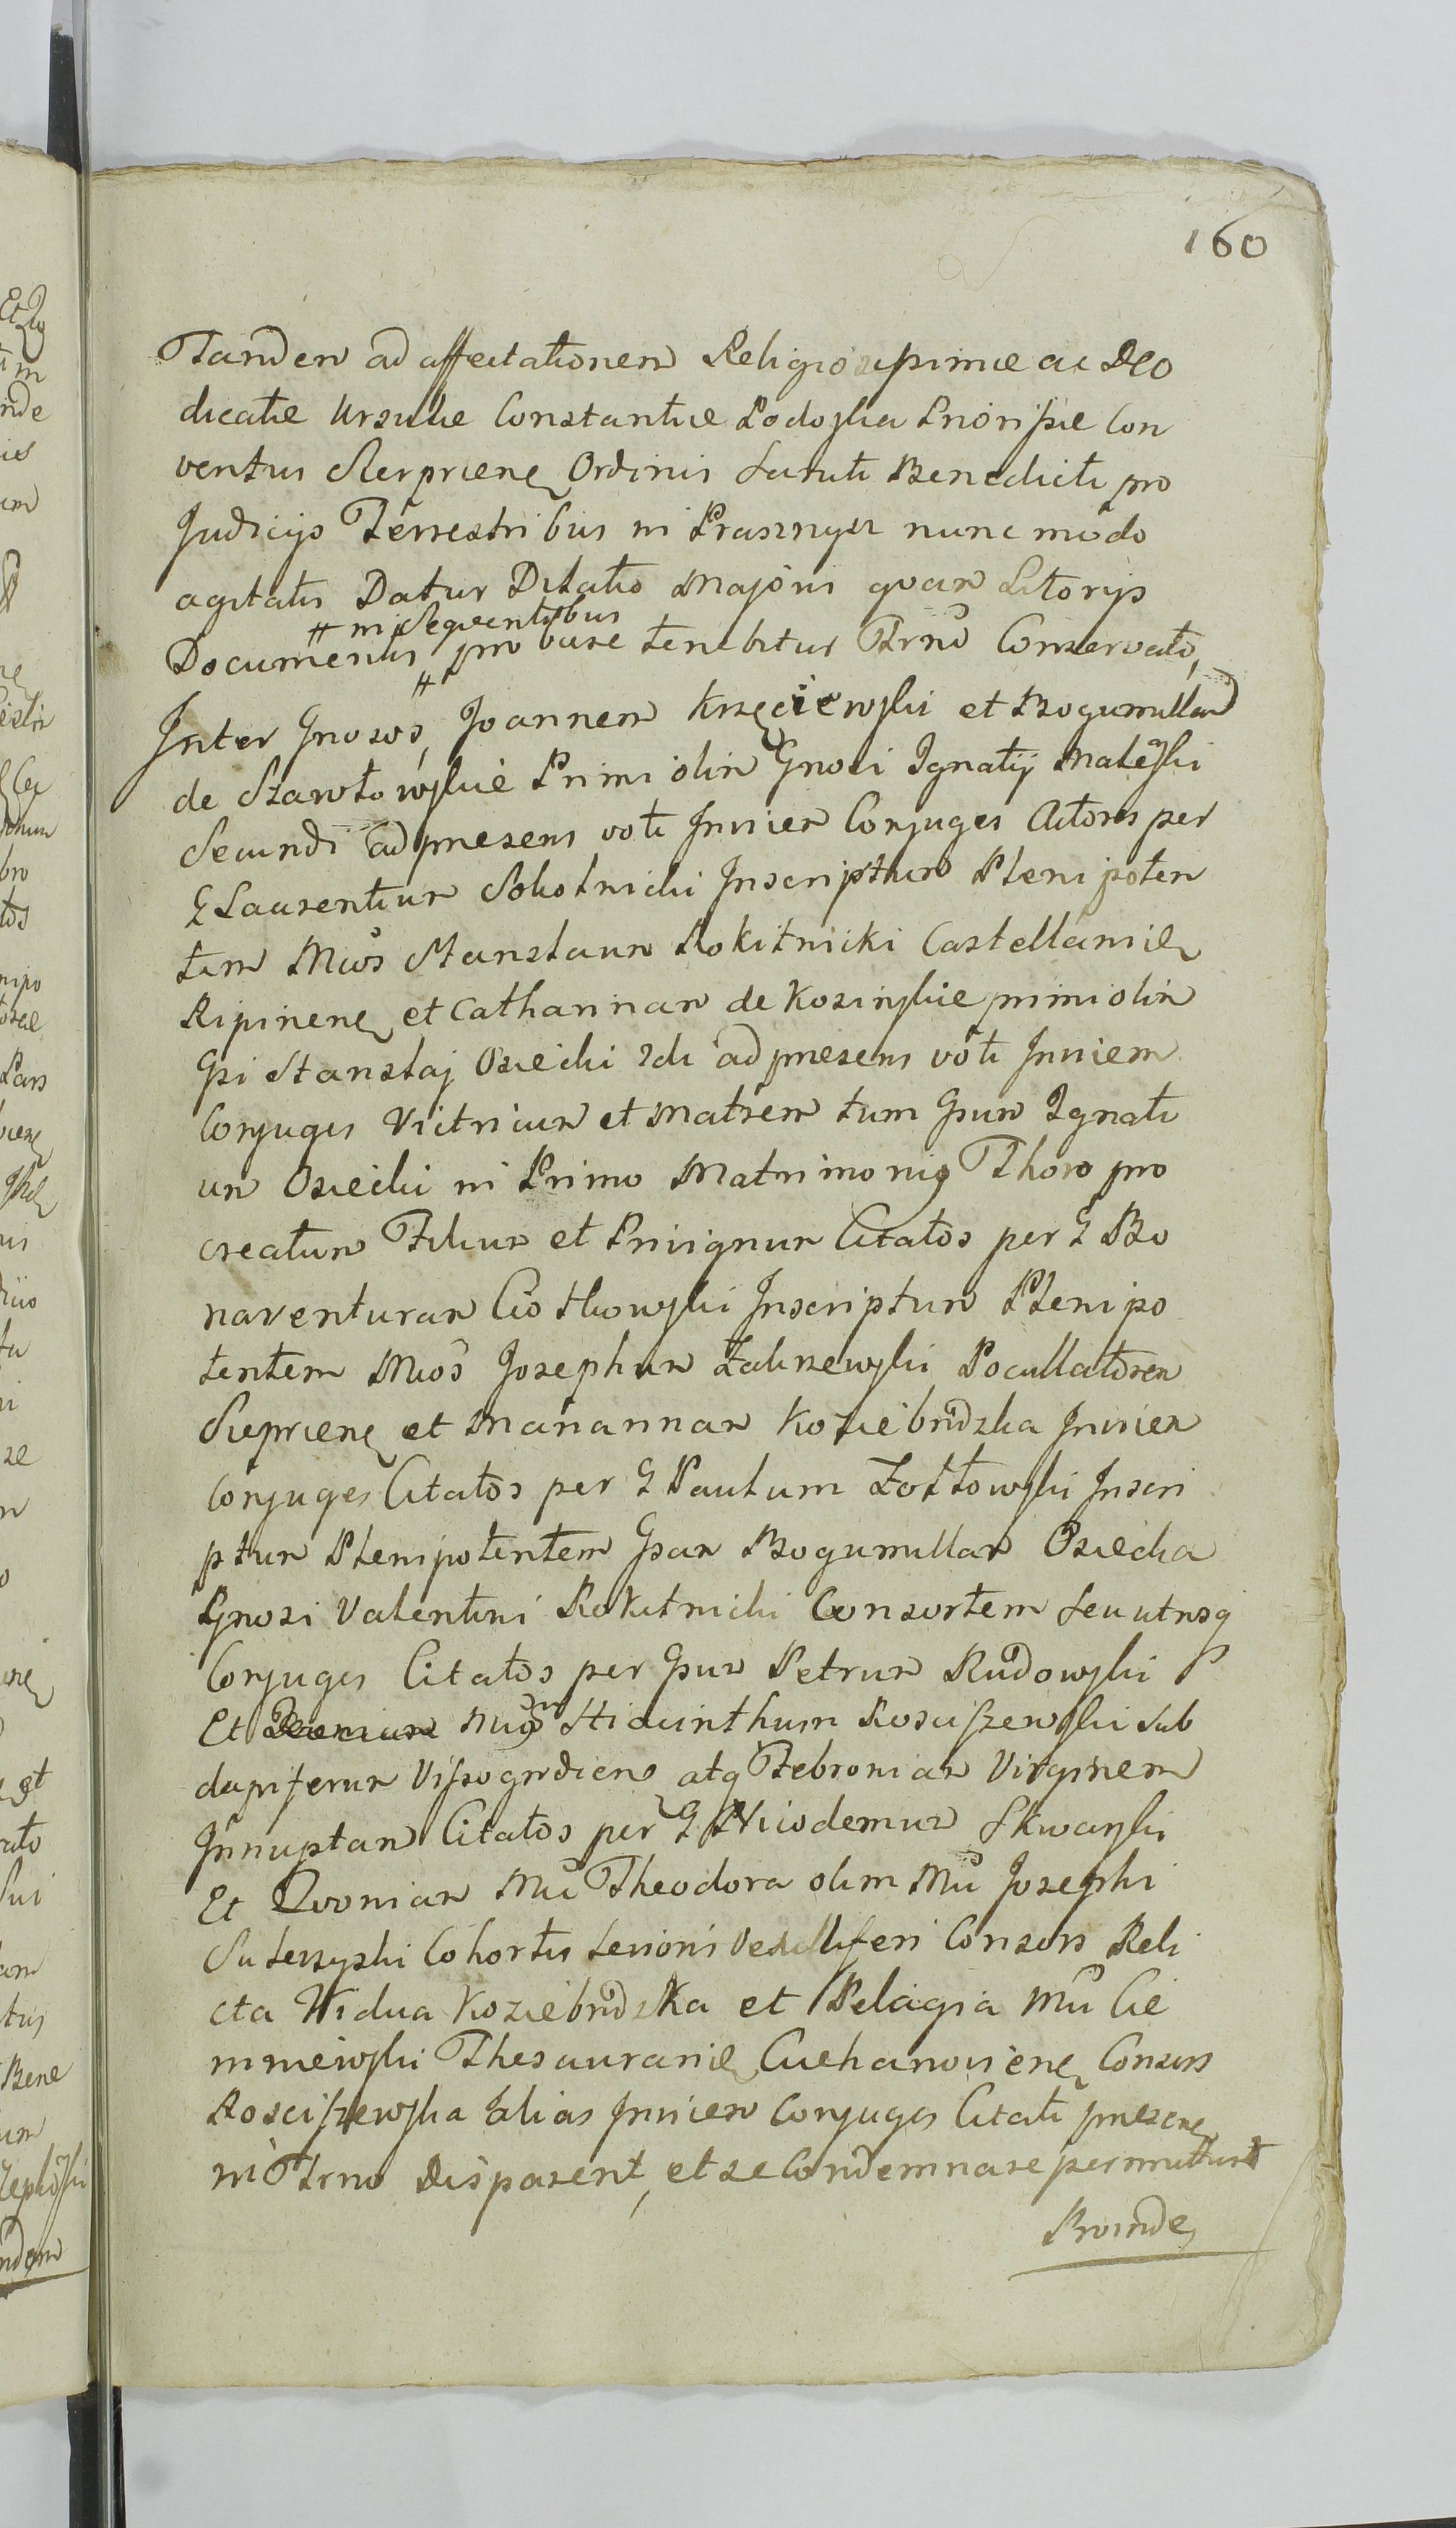 160
Tandem ad affectationem Religiosissimæ ac Deo
dicatæ Ursulæ Constantiæ Podoska Priorissæ Con
ventus Sierpciensis Ordinis Sancti Benedicti pro
Judicijs Terrestribus in Prasnysz nunc modo
agitatis Datur Dilatio Majoris quam Litorijs
# in Sequentibus
Documentis # pro bare tenebitur Trno Conservato,
Inter Gnosos, Joannem Krzęciewski et Bogumillam
de Szawłowskie Primi olim Gnosi Ignatij Maleski
Secundi ad præsens voti Invicem Conjuges Actores per
G Laurentium Sokolnicki Inscriptum Plenipoten
tem Mcos Stanslaum Rokitnicki Castellanię
Ripinenę et Catharinam de Kosinskie primi olim
Gsi Stanslaj Osiecki 2di ad præsens voti Invicem
Conjuges Vitricum et Matrem tum Gsum Ignati
um Osiecki in Primo Matrimonij Thoro pro
creatum Filium et Privignum Citatos per G Bo
naventuram Ciotkowski Inscriptum Plenipo
tentem Mcos Josephum Zakrzewski Pocullatorem
Sieprcienę et Mariannam Koziebrodzka Invicem
Conjuges Citatos per G Paulum Zołtowski Inscri
ptum Plenipotentem Gsam Bogumillam Osiecka
Gnosi Valentini Rokitnicki Consortem seu utrosq
Conjuges Citatos per Gsum Petrum Rudowski
Et Mcum Hiacinthum Rosciszewski Sub
dapiferum Vissogrdiens atq Febroniam Virginem
Innuptam Citatos per G Nicodemum Skwarski
Et Quoniam Mca Theodora olim Mci Josephi
Suterzyski Cohortis Levioris Vexilliferi Consors Reli
cta Vidua Koziebrodzka et Pelagia Mci Cie
mniewski Thesaurarię Ciechanoviene Consors
Rosciszewska alias Invicem Conjuges Citati præsenę
in Trno Disparent, et se Condemnare permittunt
Proinde